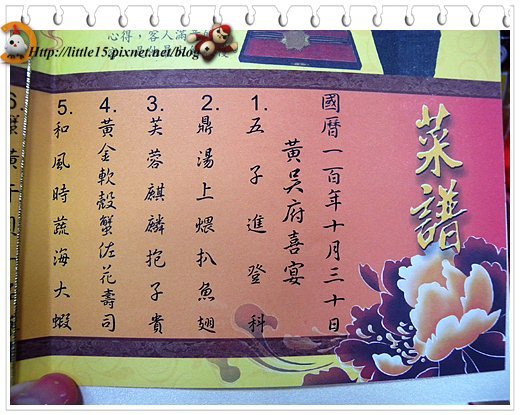 心得，客人滿
Http://little15.pixnet.net/blog
菜譜
國曆一百年十月三十日
黃吳府喜宴
1.五子進登科
2.鼎湯上煨扒魚翅
3.芙蓉麒麟抱子貴
4.黃金軟殼蟹佐花壽司
5.和風時蔬海大蝦